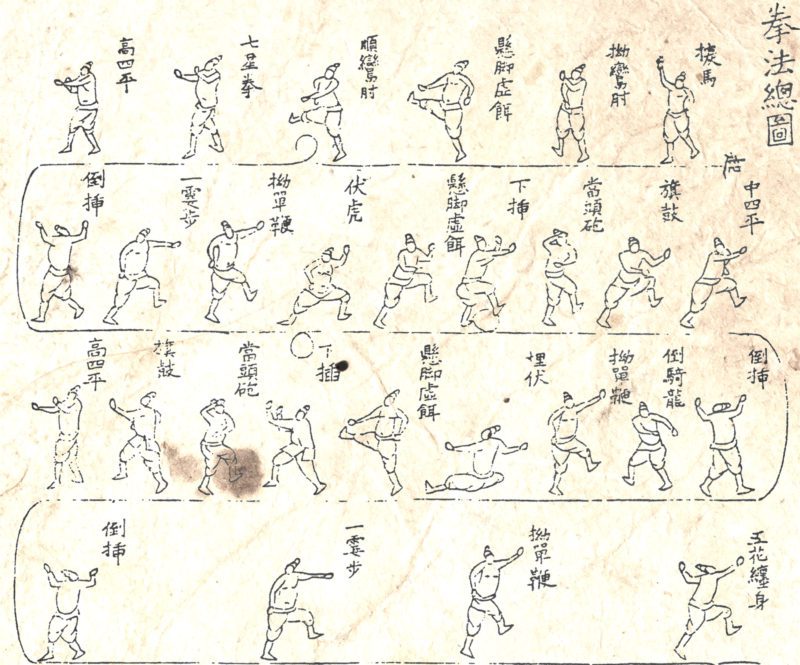 拳法總圖
探馬
拗鸞肘
懸脚虛餌
順鸞肘
七星拳
高四平
倒揷
一霎步
拗單鞭
伏虎
懸脚虛餌
下揷
當頭砲
旗鼓
中四平
倒揷
倒騎龍
拗單鞭
埋伏
懸脚虛餌
下揷
當頭砲
旗鼓
高四平
倒揷
一霎步
拗單鞭
五花纏身